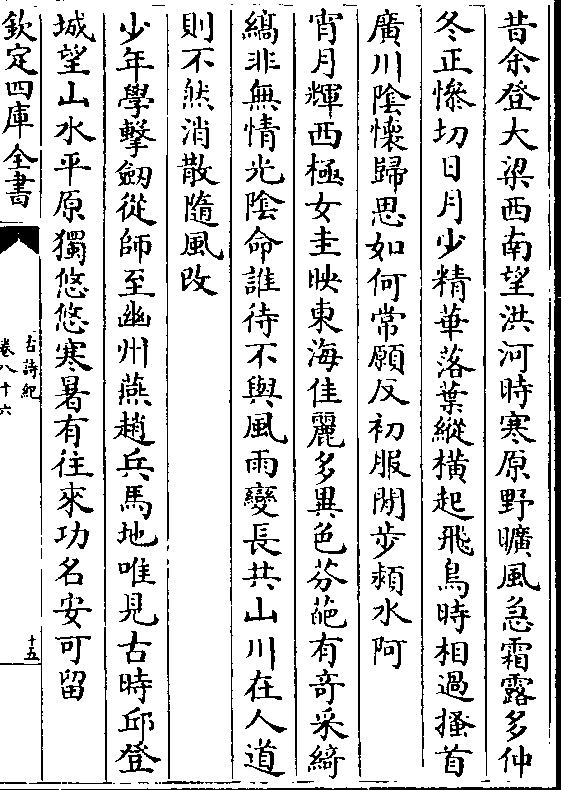 昔余登大梁西南望洪河時寒原野曠風急霜露多仲
冬正慘切日月少精華落葉縱橫起飛鳥時相過搔首
廣川隂懷歸思如何常願反初服閒步潁水阿
宵月輝西極女圭映東海佳麗多異色芬葩有奇采綺
縞非無情光陰命誰待不與風雨變長共山川在人道
則不然消散隨風改
少年學擊劒從師至幽州燕趙兵馬地唯見古時邱登
城望山水平原獨悠悠寒暑有往來功名安可留
欽定四庫全書
古詩紀
卷八十六
十五